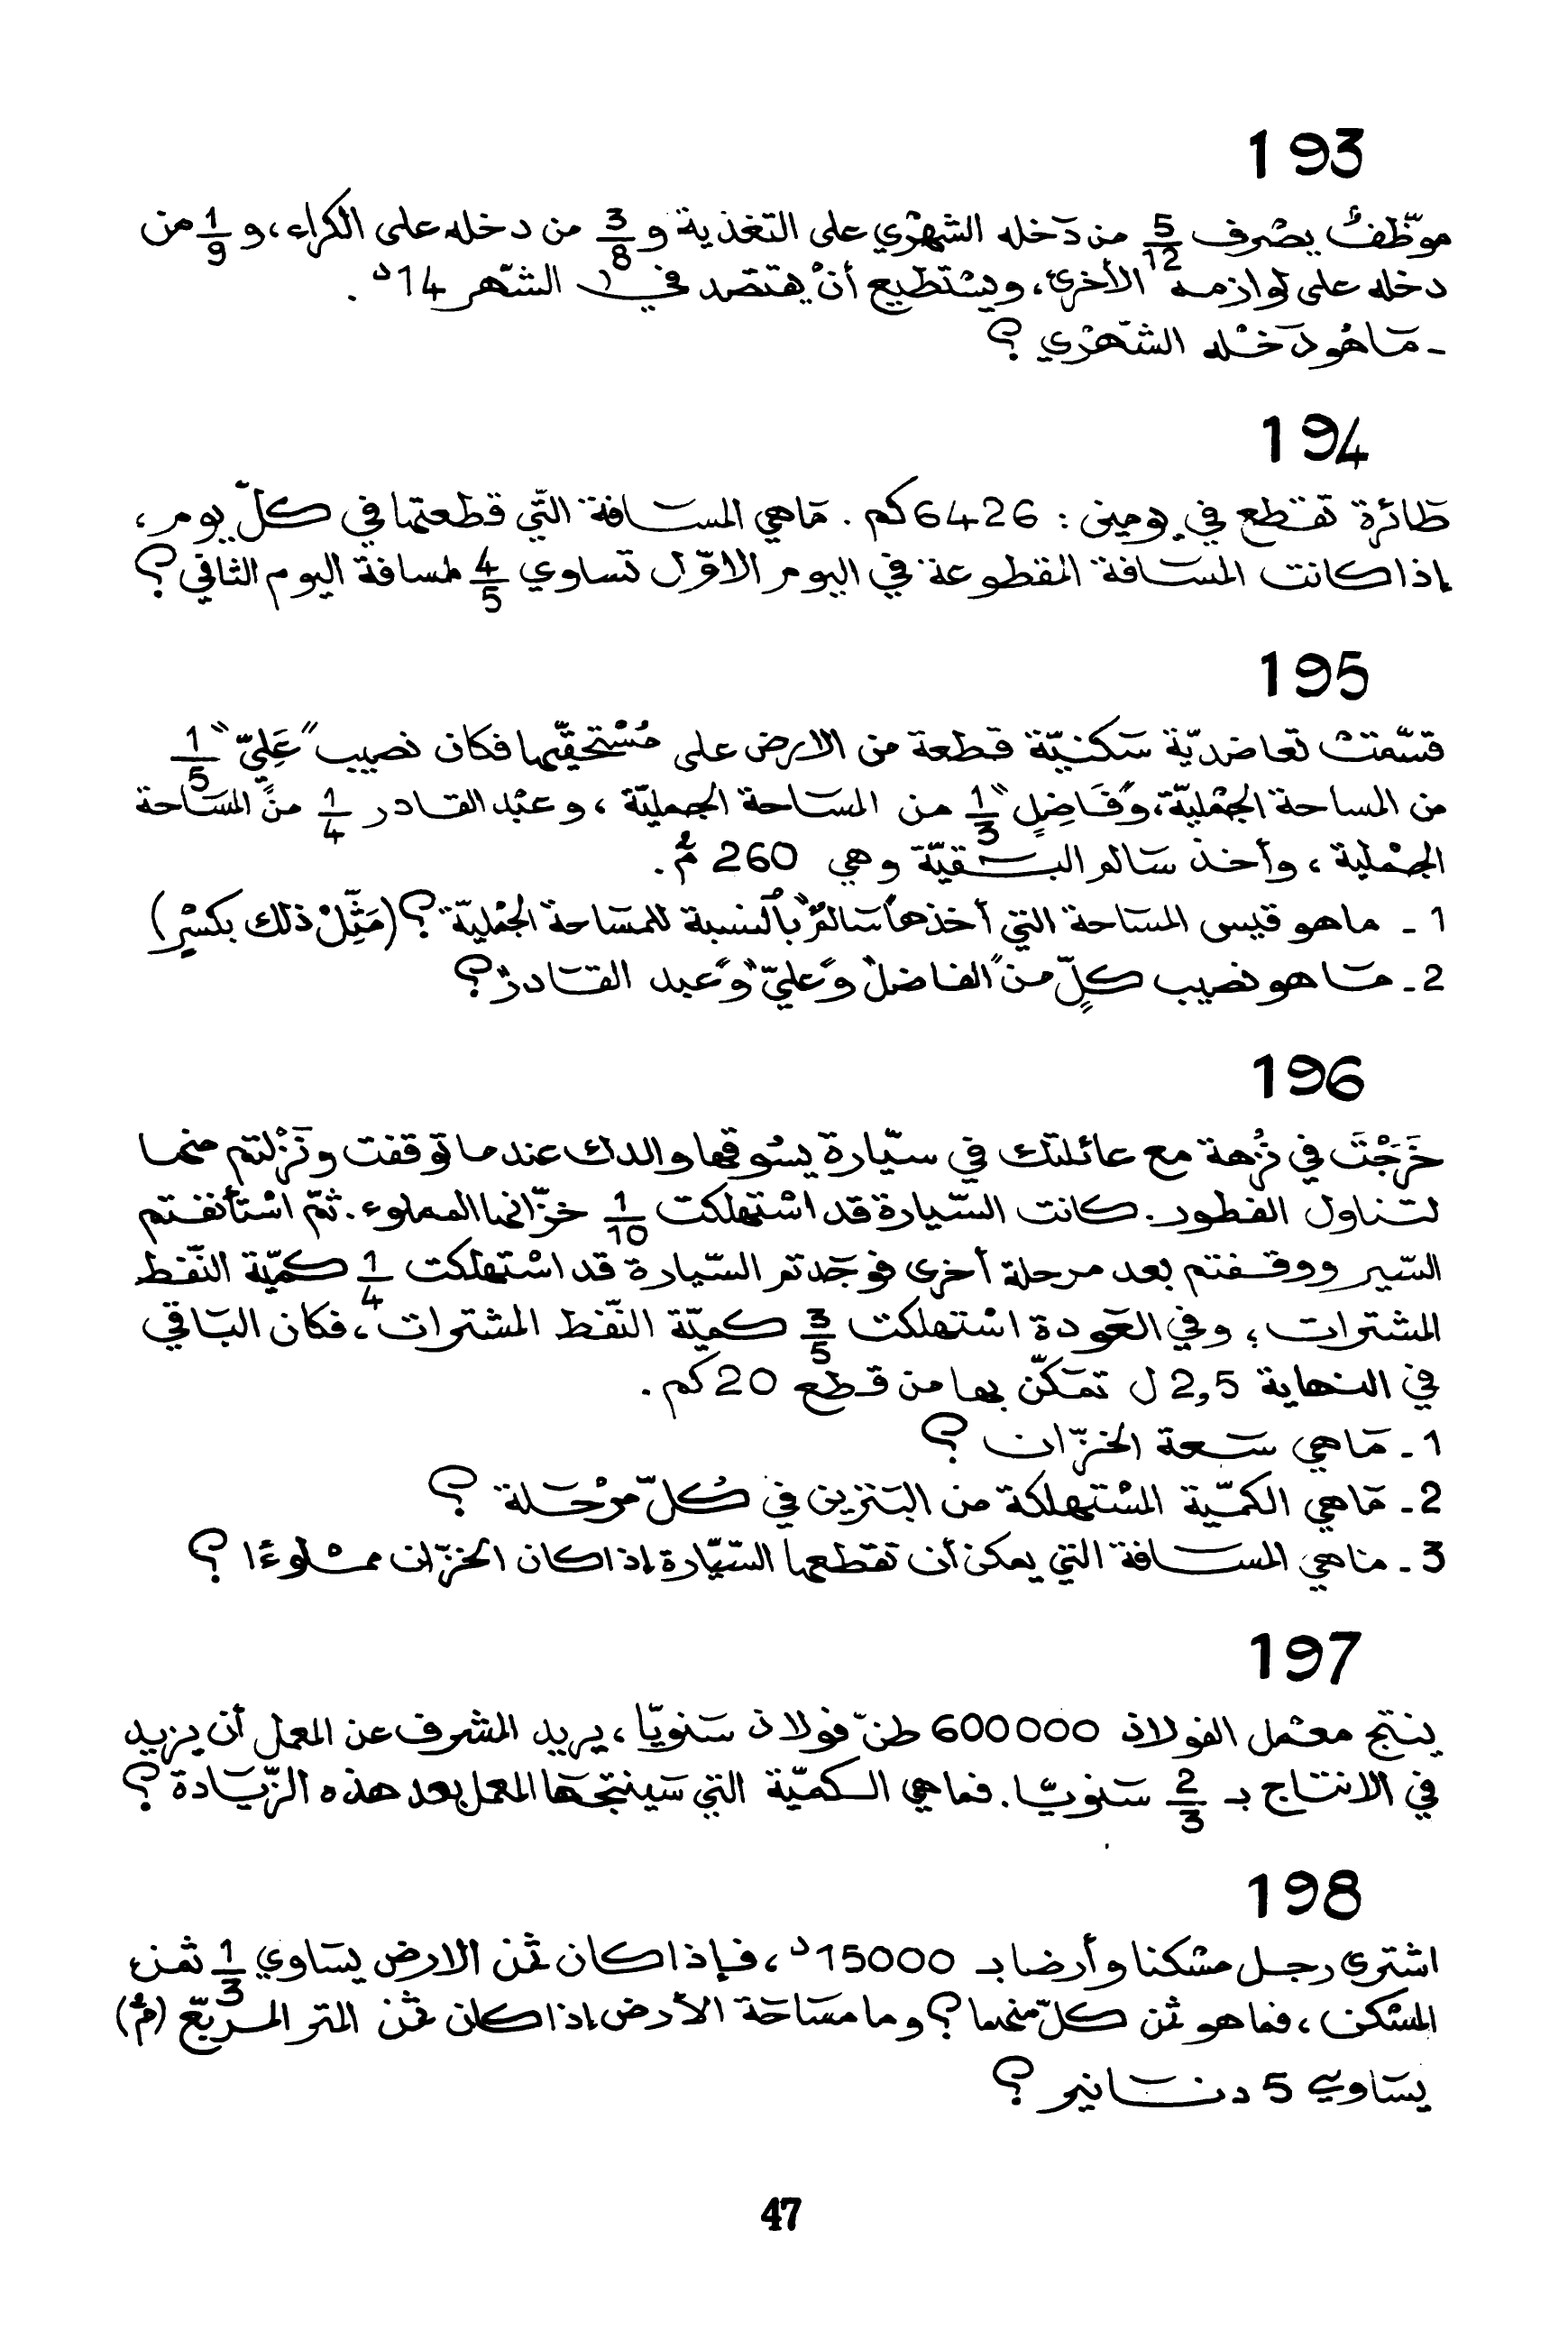 193
موظّفٌ يصْرف 5/12 من دَخله الشهْري على التغذية و 3/8 من دخله على الكراء، و 1/9 من
دخله على لوازمه الأخرى، ويسْتطيع أنْ يقتصد في الشّهر 14د .
- مَا هُو دَخْله الشّهْري ؟
194
طَائرة تقْطع في يومين : 6426 كم . مَا هي المسَافة التّي قطعتها في كلّ يوم،
إذا كانت المسَافة المقطوعة في اليوم الاوّل تساوي 4/5 لمسافة اليوم الثاني ؟
195
قسّمتْ تعاضديّة سَكنيّة قطعة من الارض على مُسْتحقّيها فكان نصيب "عَلِيّ" 1/5
من المساحة الجمْليّة، وَ"فَاضِلٍ" 1/3 من المسَاحة الجمليّة ، و "عبْد القَادر" 1/4 من المسَاحة
الجمْلية ، وأخذ سَالم البَقيّة وهي 260 م².
1 - ما هو قيس المسَاحة التي أخذها "سَالمٌ" بالنسبة للمسَاحة الجمْليّة ؟ (مَثِّلْ ذلك بكسْرٍ)
2 - مَا هو نصيب كلٍّ من "الفاضل" و"عليّ" و"عبد القَادر" ؟
196
خَرَجْتَ في نُزهة مع عائلتك في سيّارة يسُوقها والدك عندما توقفت ونَزْلتم منها
لتناول الفطور. كانت السّيارة قد اسْتهلكت 1/10 خزّانها المملوء. ثمّ اسْتأنفتم
السّير ووقفتم بعد مرحلة أخرى فوجَدتم السّيارة قد اسْتهلكت 1/4 كميّة النّفط
المشترات ؛ وفي العَودة اسْتهلكت 3/5 كميّة النّفط المشترات ، فكان البَاقي
في النهاية 2,5 ل تمَكّن بها من قطع 20 كم .
1 - مَا هي سَعة الخزّان ؟
2 - مَا هي الكمّية المسْتهلكة من البَنزين في كُلّ مرْحَلة ؟
3 - ما هي المسَافة التي يمكن أن تقطعها السّيّارة إذا كان الخزّان ممْلوءًا ؟
197
ينتج معْمل الفولاذ 600000 طنّ فولاذ سَنويّا ، يريد المشرف عن المعمل أن يزيد
في الانتَاج بـ 2/3 سَنويّا . فما هي الكميّة التي سَينتجهَا المعمل بعد هذه الزّيَادة ؟
198
اشترى رجل مسْكنا وأرضا بـ 15000د ، فإذا كان ثمن الارض يسَاوي 1/3 ثمن
المسْكن ، فما هو ثمن كلّ منهما ؟ وما مسَاحَة الأرض إذا كان ثمن المتر المربّع (م²)
يسَاوي 5 دنَانير ؟
47